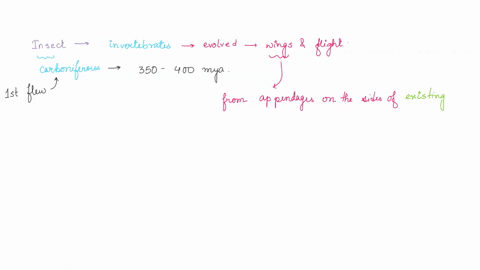 Insect → invertebrates → evolved → wings & flight.
carboniferous → 350 - 400 mya.
1st flew
from appendages on the sides of existing